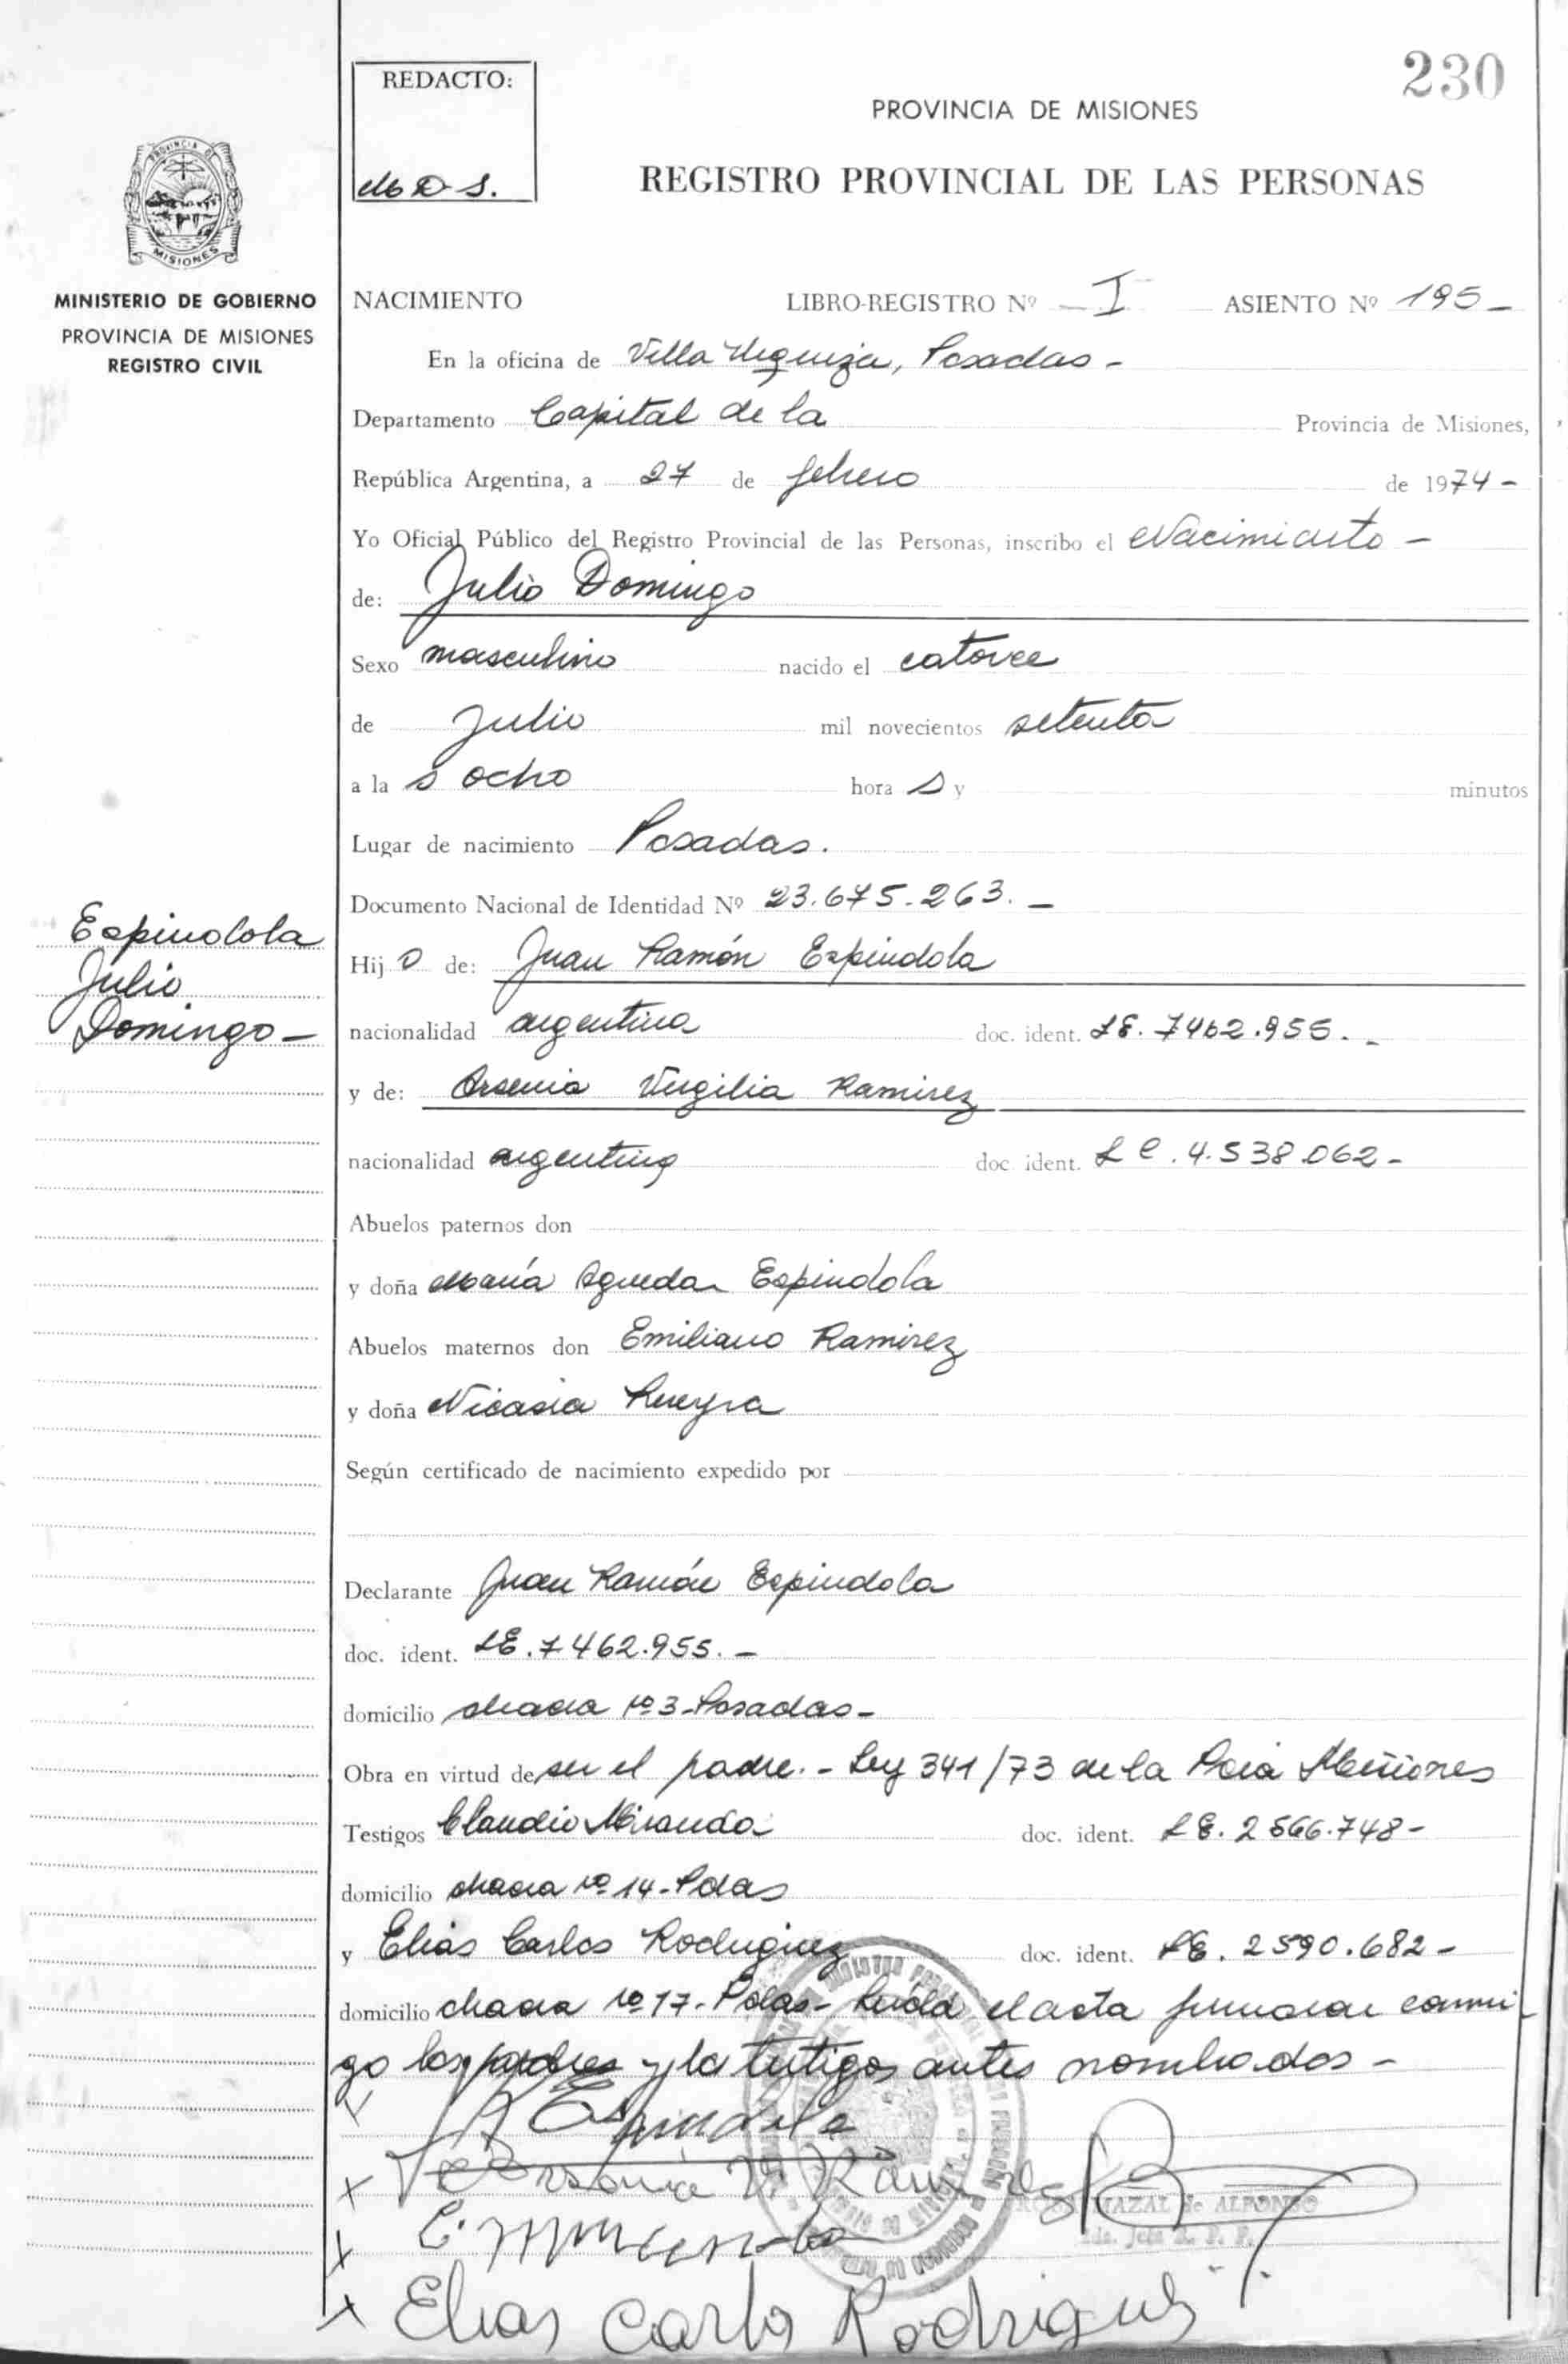 230
REDACTO:
PROVINCIA DE MISIONES
REGISTRO PROVINCIAL DE LAS PERSONAS
PROVINCIA D
MISIONES
MINISTERIO DE GOBIERNO
PROVINCIA DE MISIONES
REGISTRO CIVIL
NACIMIENTO LIBRO-REGISTRO Nº I ASIENTO Nº 195 -
En la oficina de Villa Urquiza, Posadas -
Departamento Capital de la Provincia de Misiones,
República Argentina, a 27 de febrero de 1974 -
Yo Oficial Público del Registro Provincial de las Personas, inscribo el Nacimiento -
de: Julio Domingo
Sexo masculino nacido el catorce
de Julio mil novecientos setenta
a la s ocho hora s y minutos
Lugar de nacimiento Posadas.
Documento Nacional de Identidad Nº 23.675.263. -
Espindola
Julio
Domingo -
Hij o de: Juan Ramón Espindola
nacionalidad argentina doc. ident. LE. 7462.955. -
y de: Arsenia Virgilia Ramirez
nacionalidad argentina doc. ident. L C. 4.538.062 -
Abuelos paternos don
y doña María Agueda Espindola
Abuelos maternos don Emiliano Ramirez
y doña Nicasia
Según certificado de nacimiento expedido por
Declarante Juan Ramón Espindola
doc. ident. LE. 7462.955. -
domicilio chacra nº 3 - Posadas -
Obra en virtud de ser el padre. - Ley 341/73 de la Pcia Misiones
Testigos Claudio Miranda doc. ident. LE. 2566.748 -
domicilio chacra nº 14 - Pdas
y Elias Carlos Rodriguez doc. ident. LE. 2590.682 -
domicilio chacra nº 17 - Pdas - Leída el acta firman conmi
go los padres y los testigos antes nombrados -
Espindola
Arsenia V. Ramirez
de ALFONSO
Elias Carlos Rodriguez